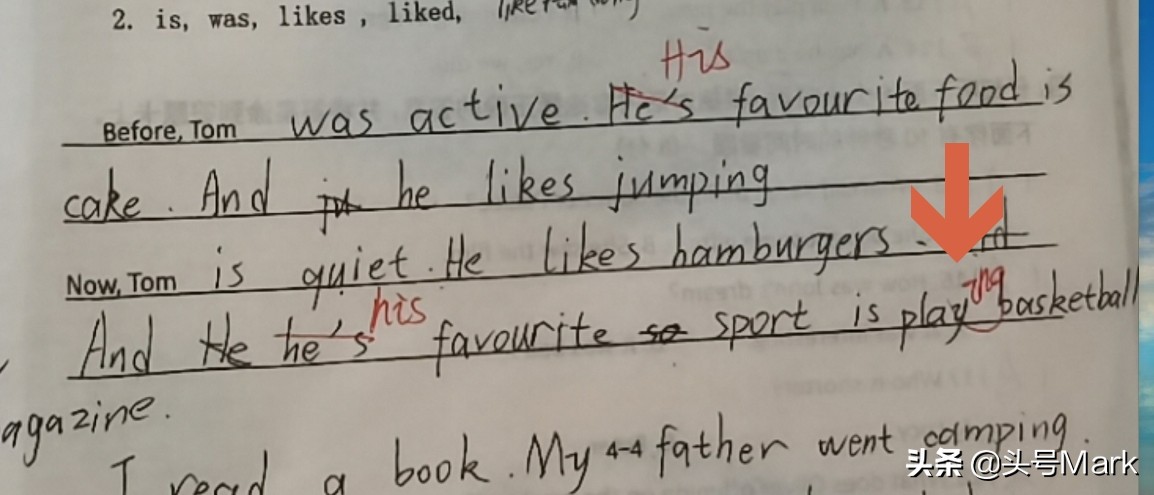 2. is, was, likes , liked,
His
Before, Tom was active. He's favourite food is
cake. And he likes jumping
Now, Tom is quiet. He likes hamburgers.
his
ing
And He he's favourite so sport is play basketball
agazine.
I read a book. My 4-4 father went camping.
头条 @头号Mark